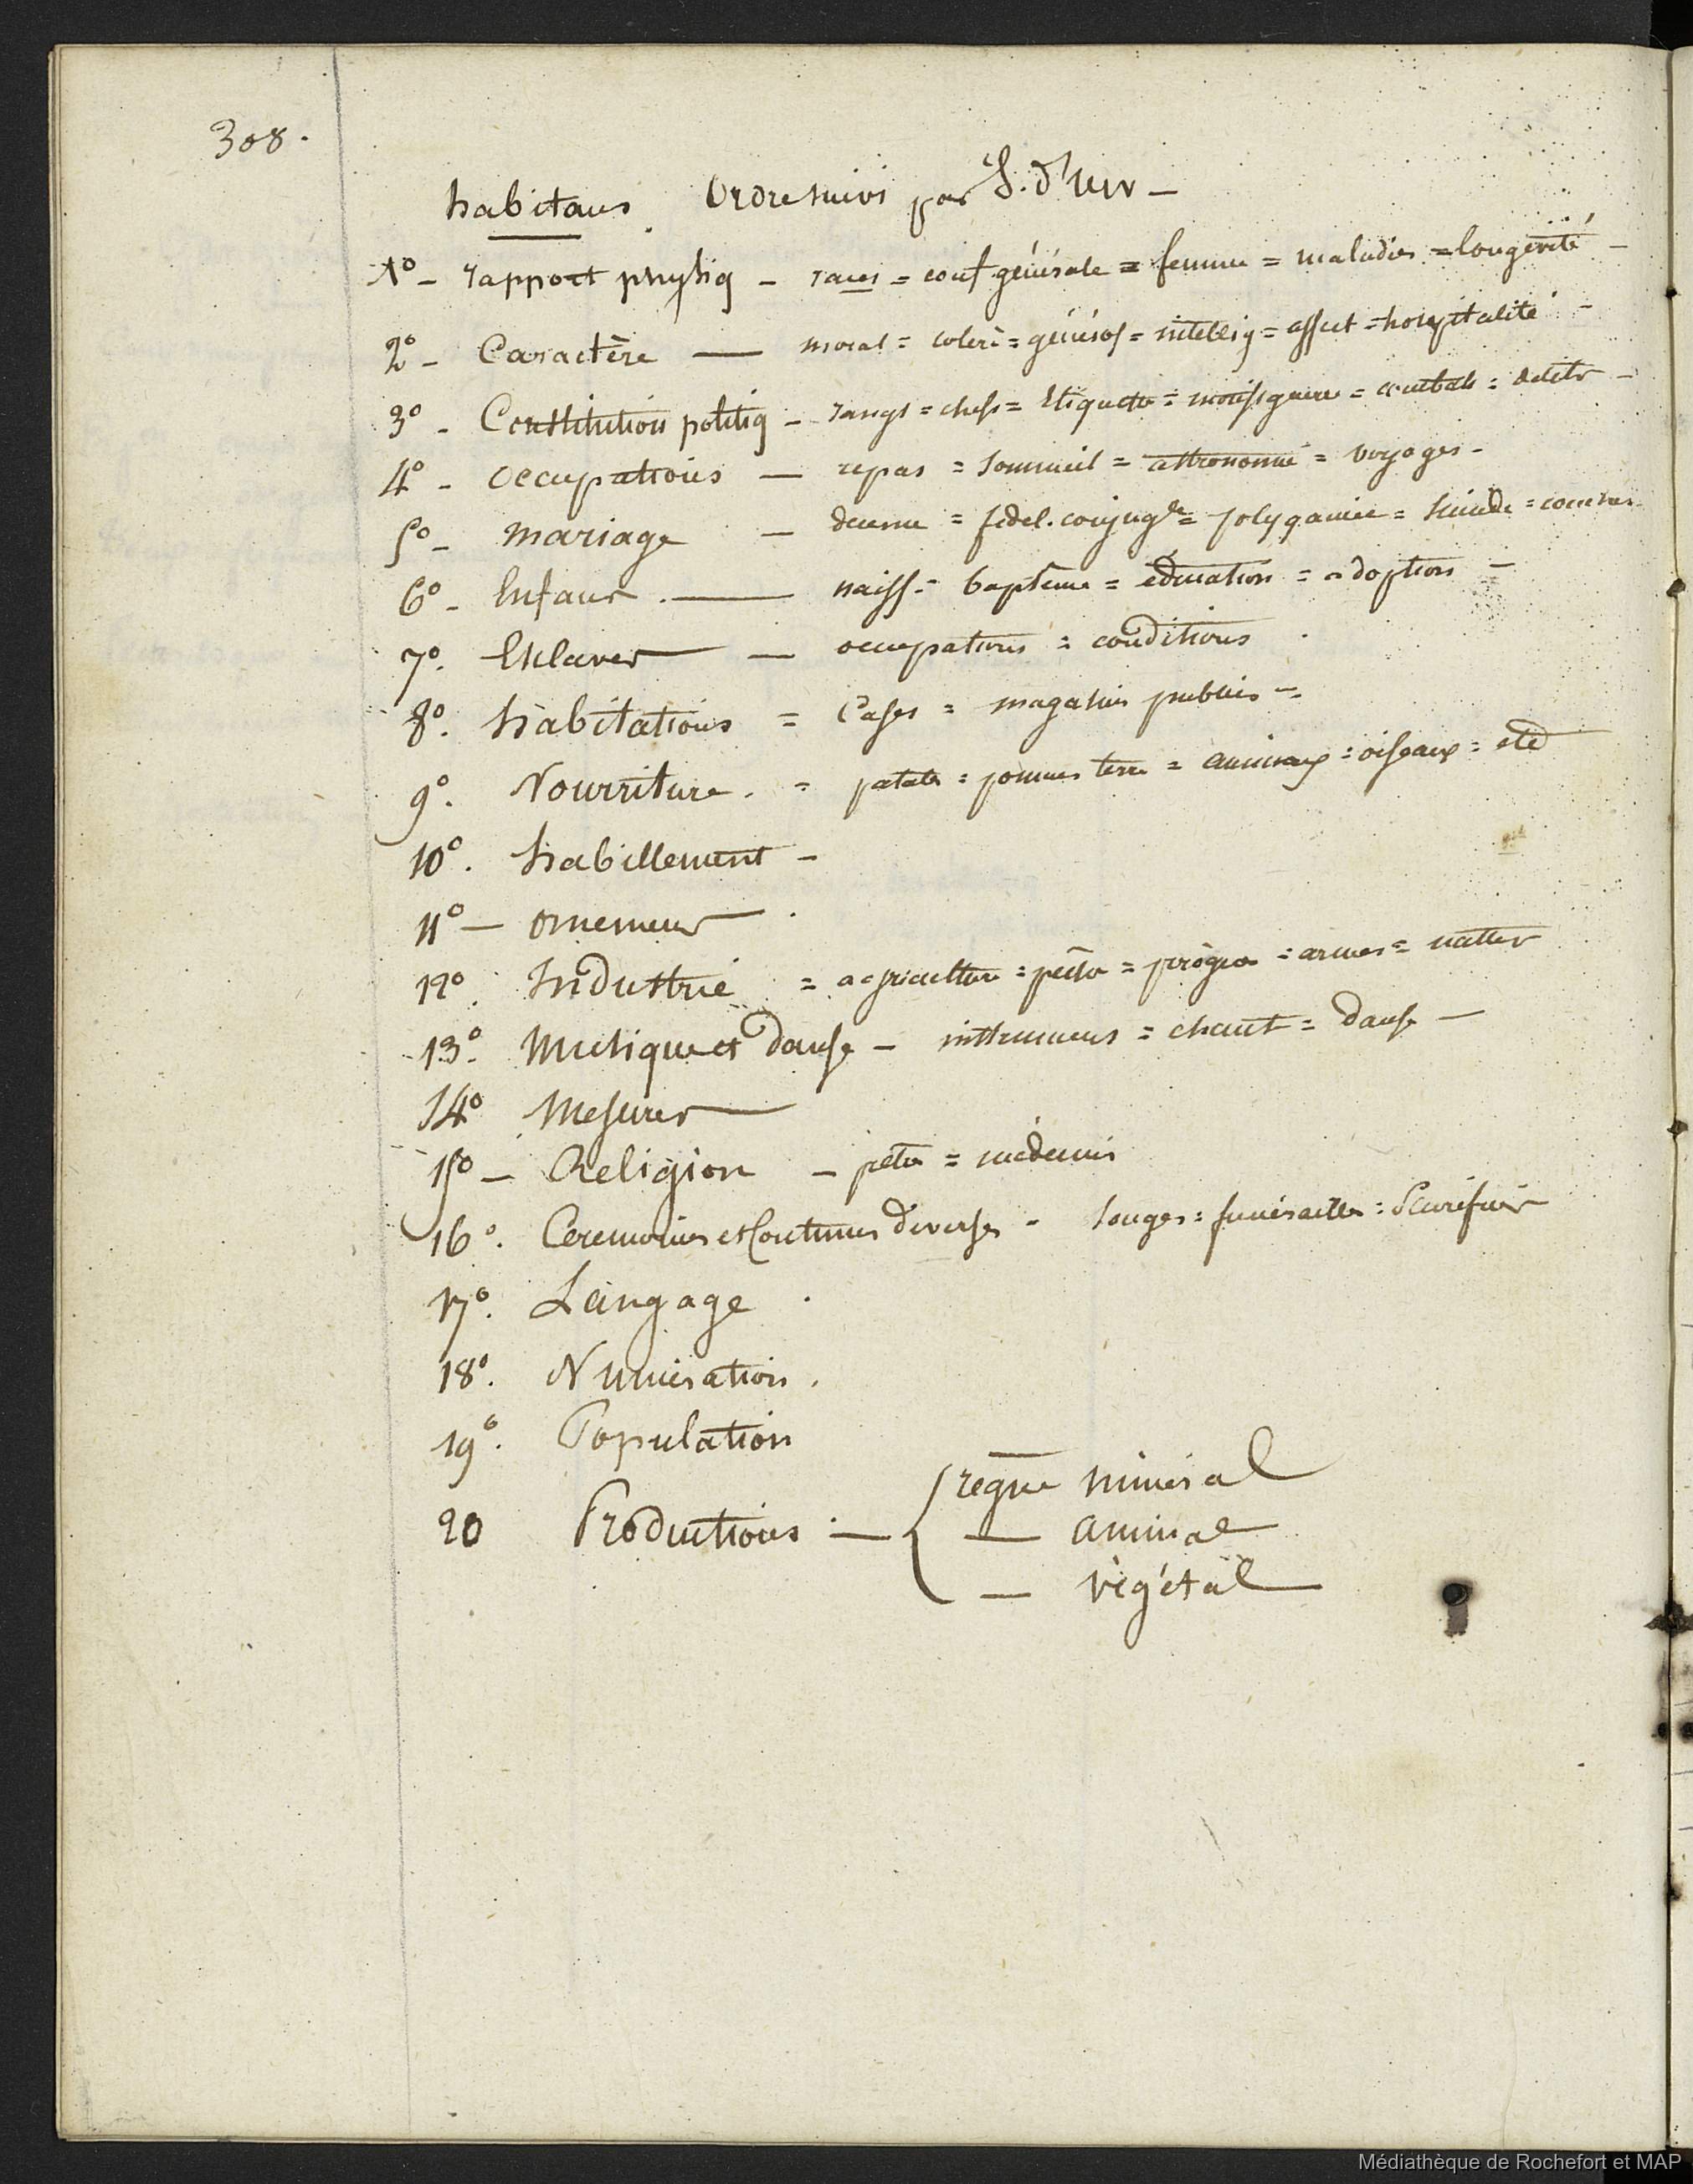 308.
habitans. Ordre suivi par S. d'Urv —
1° — rapport physiq — races = conf générale = femme = maladies = longévité —
2° — Caractère — moral = colère = généros = intellig = affect = hospitalité —
3° — Constitution politiq — rangs = chefs = Etiquette = guerre = combats = délits —
4° — occupations — repas = sommeil = astronomie = voyages —
5° — mariage — = fidel. conjugle = polygamie =
6° — Enfans. — naiss = baptême = éducation = adoption —
7°. Esclaves — occupations = conditions.
8°. habitations = Cases = magasins publics =.
9°. Nourriture. = patates = pommes terre = animaux = oiseaux = etc
10°. habillement —
11° — ornemens.
12°. Industrie = agriculture = pêche = pirogues = armes = nattes
13°. Musique et danse — instrumens = chant = danse —
14° Mesures
15° — Religion — prêtres = médecins
16°. Ceremonies et Coutumes diverses — songes = funérailles = Sacrifices
17°. Langage.
18°. Numération.
19°. Population
20 Productions. — { règne minéral
— animal
— végétal
Médiathèque de Rochefort et MAP